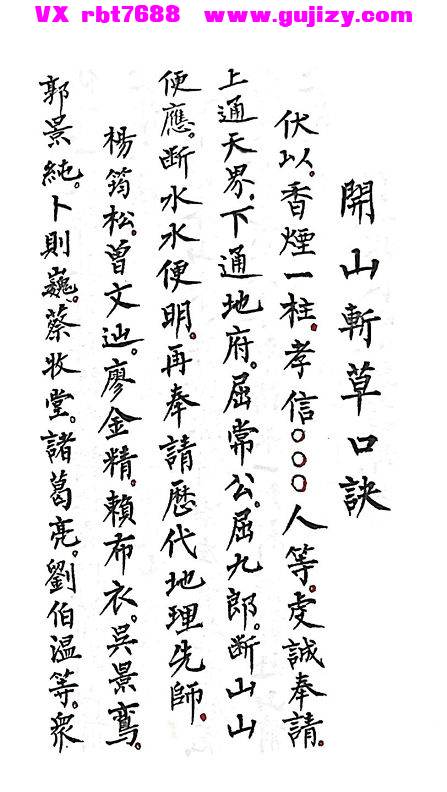 VX rbt7688 www.gujizy.com
開山斬草口訣
伏以。香煙一柱。孝信○○○人等。虔誠奉請。
上通天界。下通地府。屈常公。屈九郎。断山山
便應。断水水便明。再奉請歴代地理先師。
楊筠松。曽文辿。廖金精。賴布衣。吳景鸾。
郭景純。卜則巍。蔡牧堂。諸葛亮。劉伯温等。衆